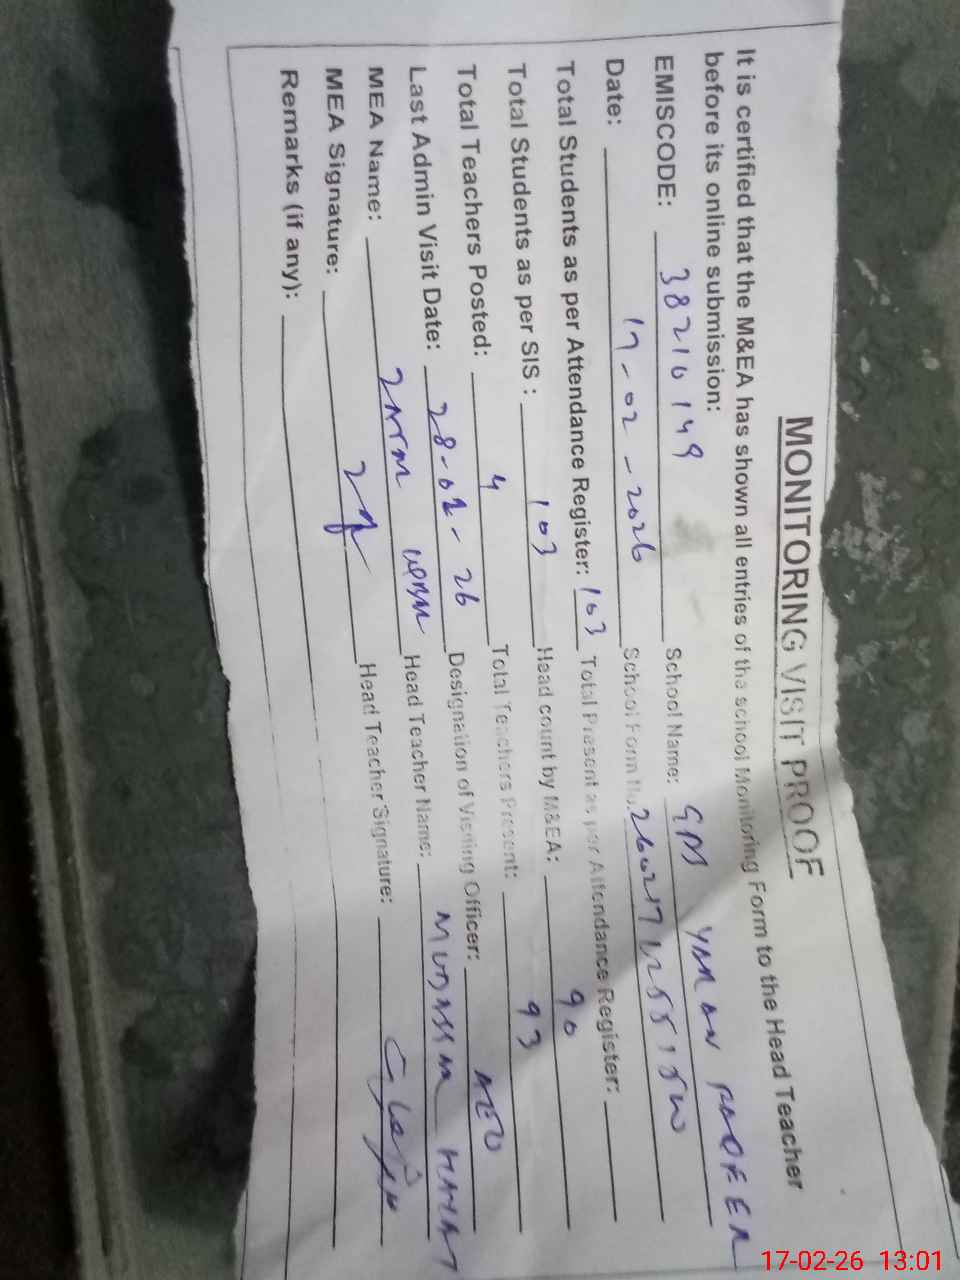 MONITORING VISIT PROOF
It is certified that the M&EA has shown all entries of the school Monitoring Form to the Head Teacher
before its online submission:
EMISCODE: 38210149 School Name: GPS
Date: 17-02-2026 School Form No.
Total Students as per Attendance Register: 103 Total Present as per Attendance Register:
Total Students as per SIS : 103 Head count by M&EA: 90
Total Teachers Posted: 4 Total Teachers Present: 93
Last Admin Visit Date: 28-01-26 Designation of Visiting Officer: AEO
MEA Name: Head Teacher Name: MUDASSAR HAYAT
MEA Signature: Head Teacher Signature:
Remarks (if any):
17-02-26 13:01